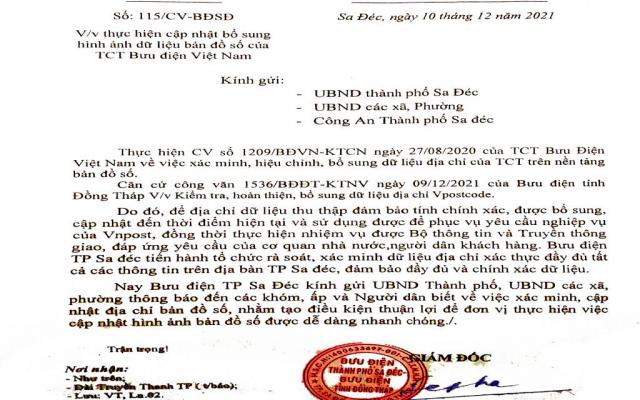 Số: 115/CV-BĐSĐ
Sa Đéc, ngày 10 tháng 12 năm 2021
V/v thực hiện cập nhật bổ sung
hình ảnh dữ liệu bản đồ số của
TCT Bưu điện Việt Nam
Kính gửi:
- UBND thành phố Sa Đéc
- UBND các xã, Phường
- Công An Thành phố Sa đéc
Thực hiện CV số 1209/BĐVN-KTCN ngày 27/08/2020 của TCT Bưu Điện
Việt Nam về việc xác minh, hiệu chỉnh, bổ sung dữ liệu địa chỉ của TCT trên nền tảng
bản đồ số.
Căn cứ công văn 1536/BĐĐT-KTNV ngày 09/12/2021 của Bưu điện tỉnh
Đồng Tháp V/v Kiểm tra, hoàn thiện, bổ sung dữ liệu địa chỉ Vpostcode.
Do đó, để địa chỉ dữ liệu thu thập đảm bảo tính chính xác, được bổ sung,
cập nhật đến thời điểm hiện tại và sử dụng được để phục vụ yêu cầu nghiệp vụ
của Vnpost, đồng thời thực hiện nhiệm vụ được Bộ thông tin và Truyền thông
giao, đáp ứng yêu cầu của cơ quan nhà nước,người dân khách hàng. Bưu điện
TP Sa đéc tiến hành tổ chức rà soát, xác minh dữ liệu địa chỉ xác thực đầy đủ tất
cả các thông tin trên địa bàn TP Sa đéc, đảm bảo đầy đủ và chính xác dữ liệu.
Nay Bưu điện TP Sa Đéc kính gửi UBND Thành phố, UBND các xã,
phường thông báo đến các khóm, ấp và Người dân biết về việc xác minh, cập
nhật địa chỉ bản đồ số, nhằm tạo điều kiện thuận lợi để đơn vị thực hiện việc
cập nhật hình ảnh bản đồ số được dễ dàng nhanh chóng./.
Trân trọng!
GIÁM ĐỐC
Nơi nhận:
- Như trên;
- Đài Truyền Thanh TP ( t/báo);
- Lưu: VT, La.02.
BƯU ĐIỆN
THÀNH PHỐ SA ĐÉC-
BƯU ĐIỆN
TỈNH ĐỒNG THÁP